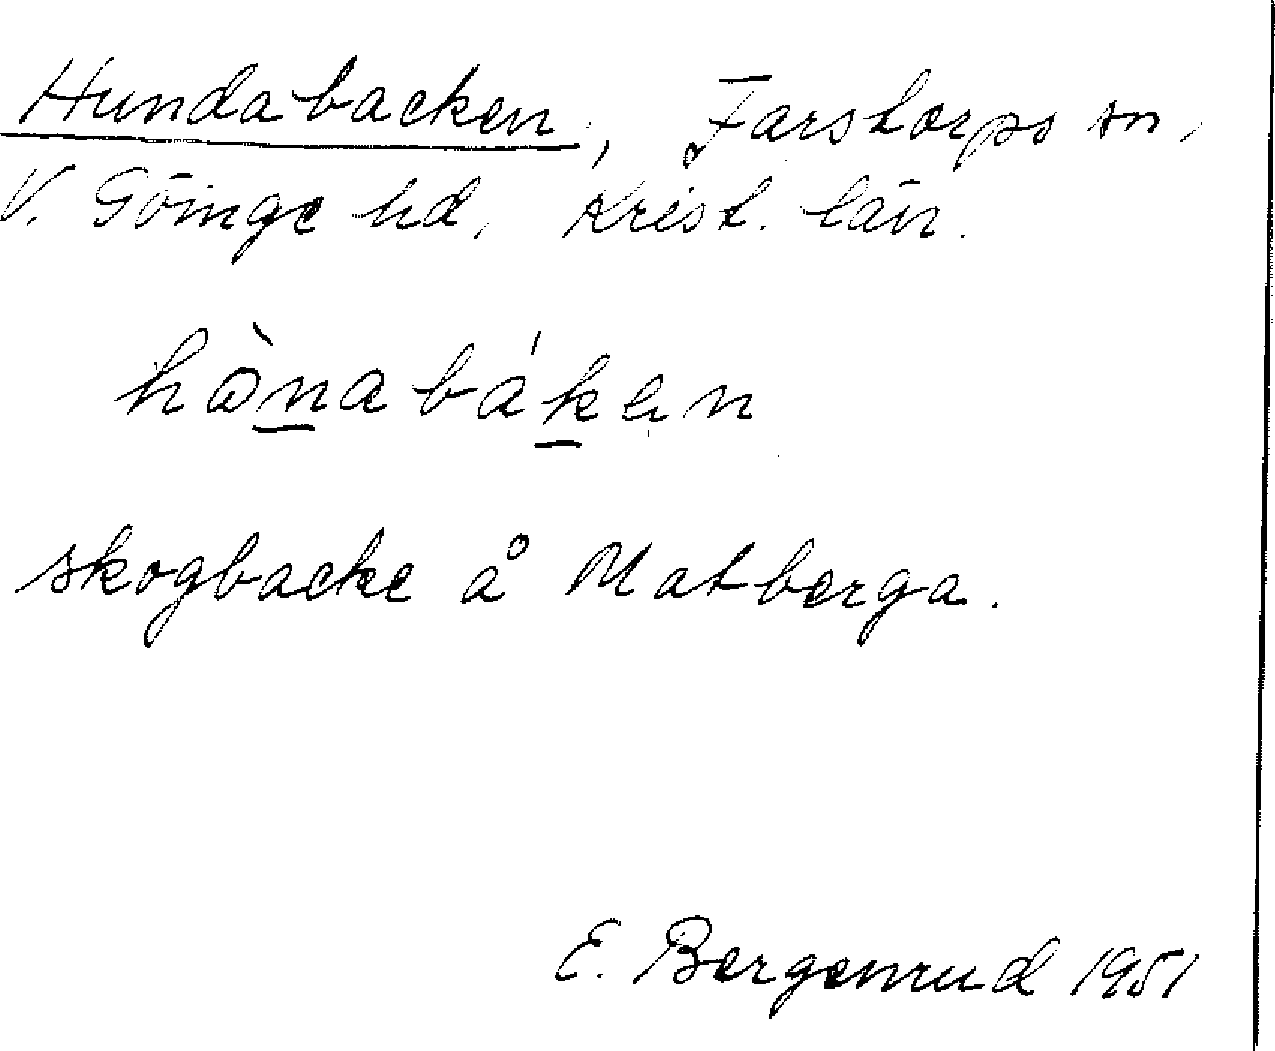 Hundabacken, Farstorps sn,
V. Göinge hd, Krist. län.
hòn̲abák̲ən
skogbacke å Matberga.
E. Bergenrud 1951